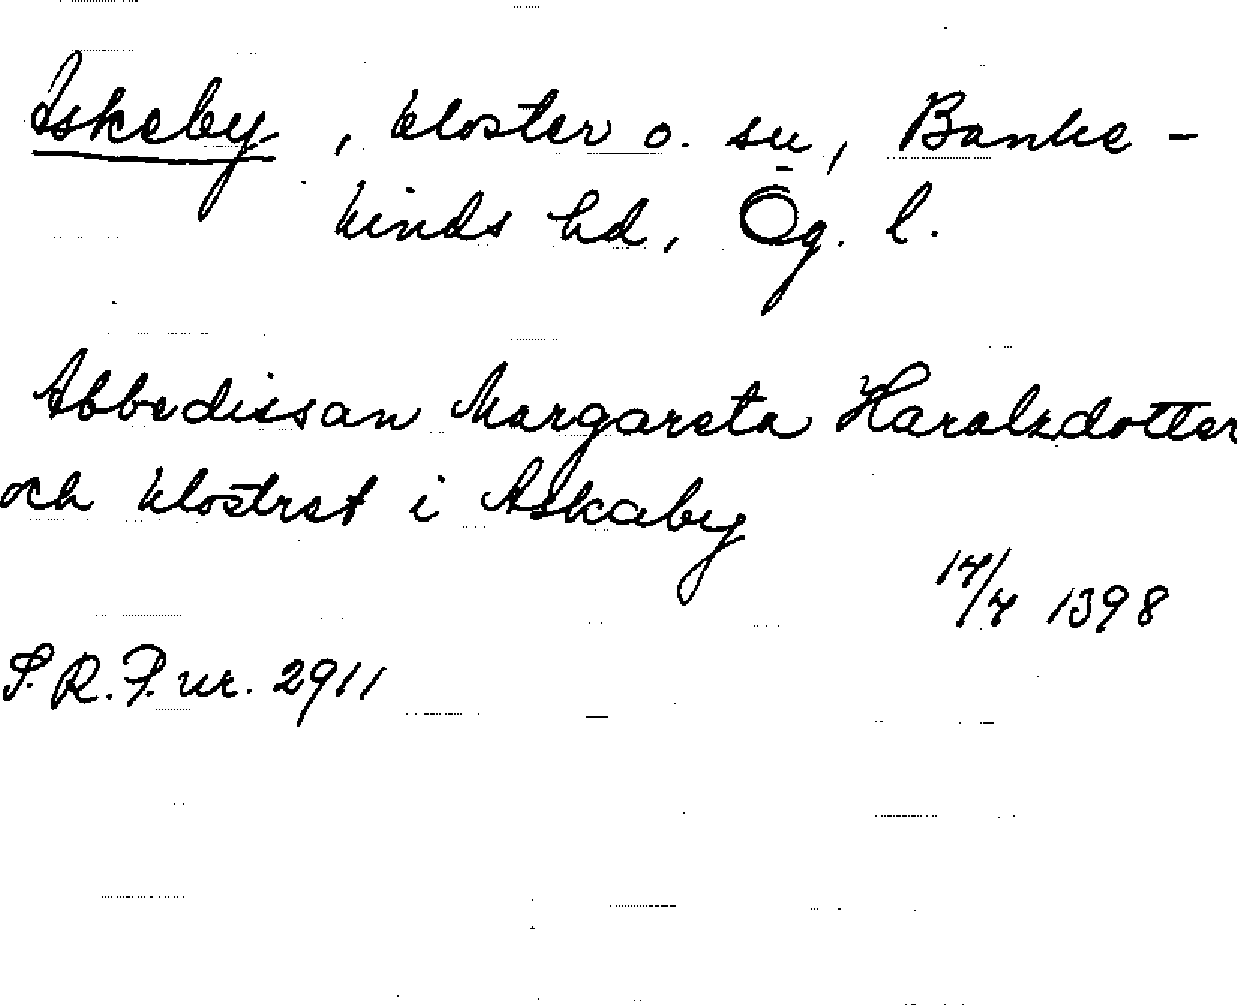 Askeby, kloster o. sn, Banke-
kinds hd, Ög. l.
Abbedissan Margareta Haralzdotter
och klostret i Askaby
14/4 1398
S.R.P. nr. 2911